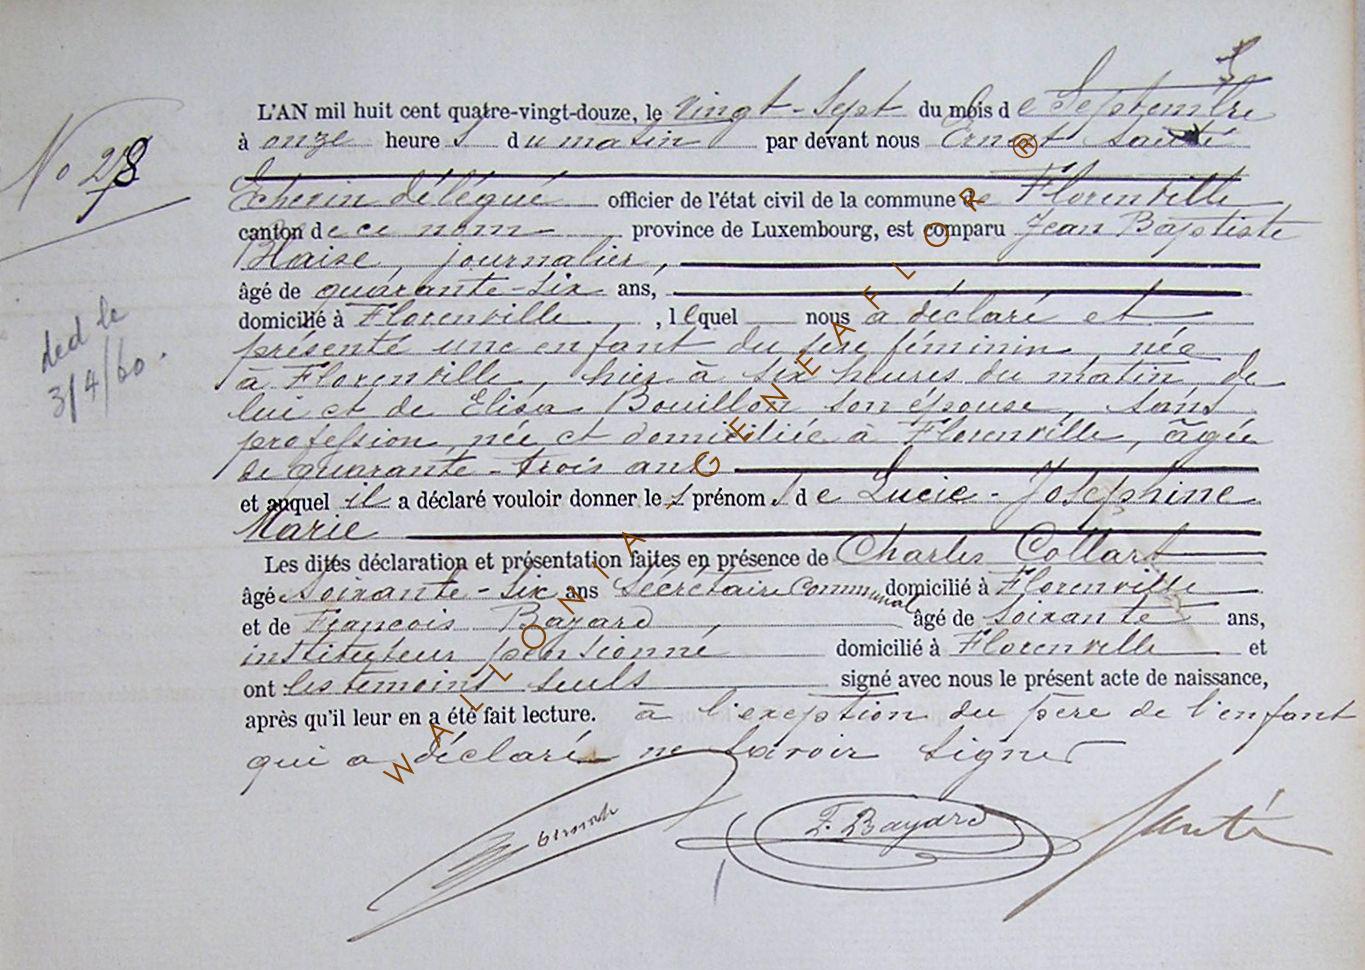 No 28
L'AN mil huit cent quatre-vingt-douze, le vingt-sept du mois de Septembre
à onze heures du matin par devant nous Ernest Santé
Echevin délégué officier de l'état civil de la commune de Florenville
canton de ce nom province de Luxembourg, est comparu Jean Baptiste
Blaise, journalier,
âgé de quarante-six ans,
domicilié à Florenville, lequel nous a déclaré et
présenté une enfant du sexe féminin, née
à Florenville, hier à six heures du matin, de
lui et de Elisa Bouillon son épouse, sans
profession, née et domiciliée à Florenville, âgée
de quarante-trois ans
et auquel il a déclaré vouloir donner les prénoms de Lucie-Joséphine
Marie
Les dites déclaration et présentation faites en présence de Charles Collart
âgé Soixante-Six ans Secrétaire communal domicilié à Florenville
et de François Bayard, âgé de soixante ans,
instituteur pensionné domicilié à Florenville et
ont les témoins seuls signé avec nous le présent acte de naissance,
après qu'il leur en a été fait lecture. à l'exception du père de l'enfant
qui a déclaré ne savoir signer
F. Bayard
Santé
déd le
3/4/60.
WALLONIA / GENEAFLOR ®